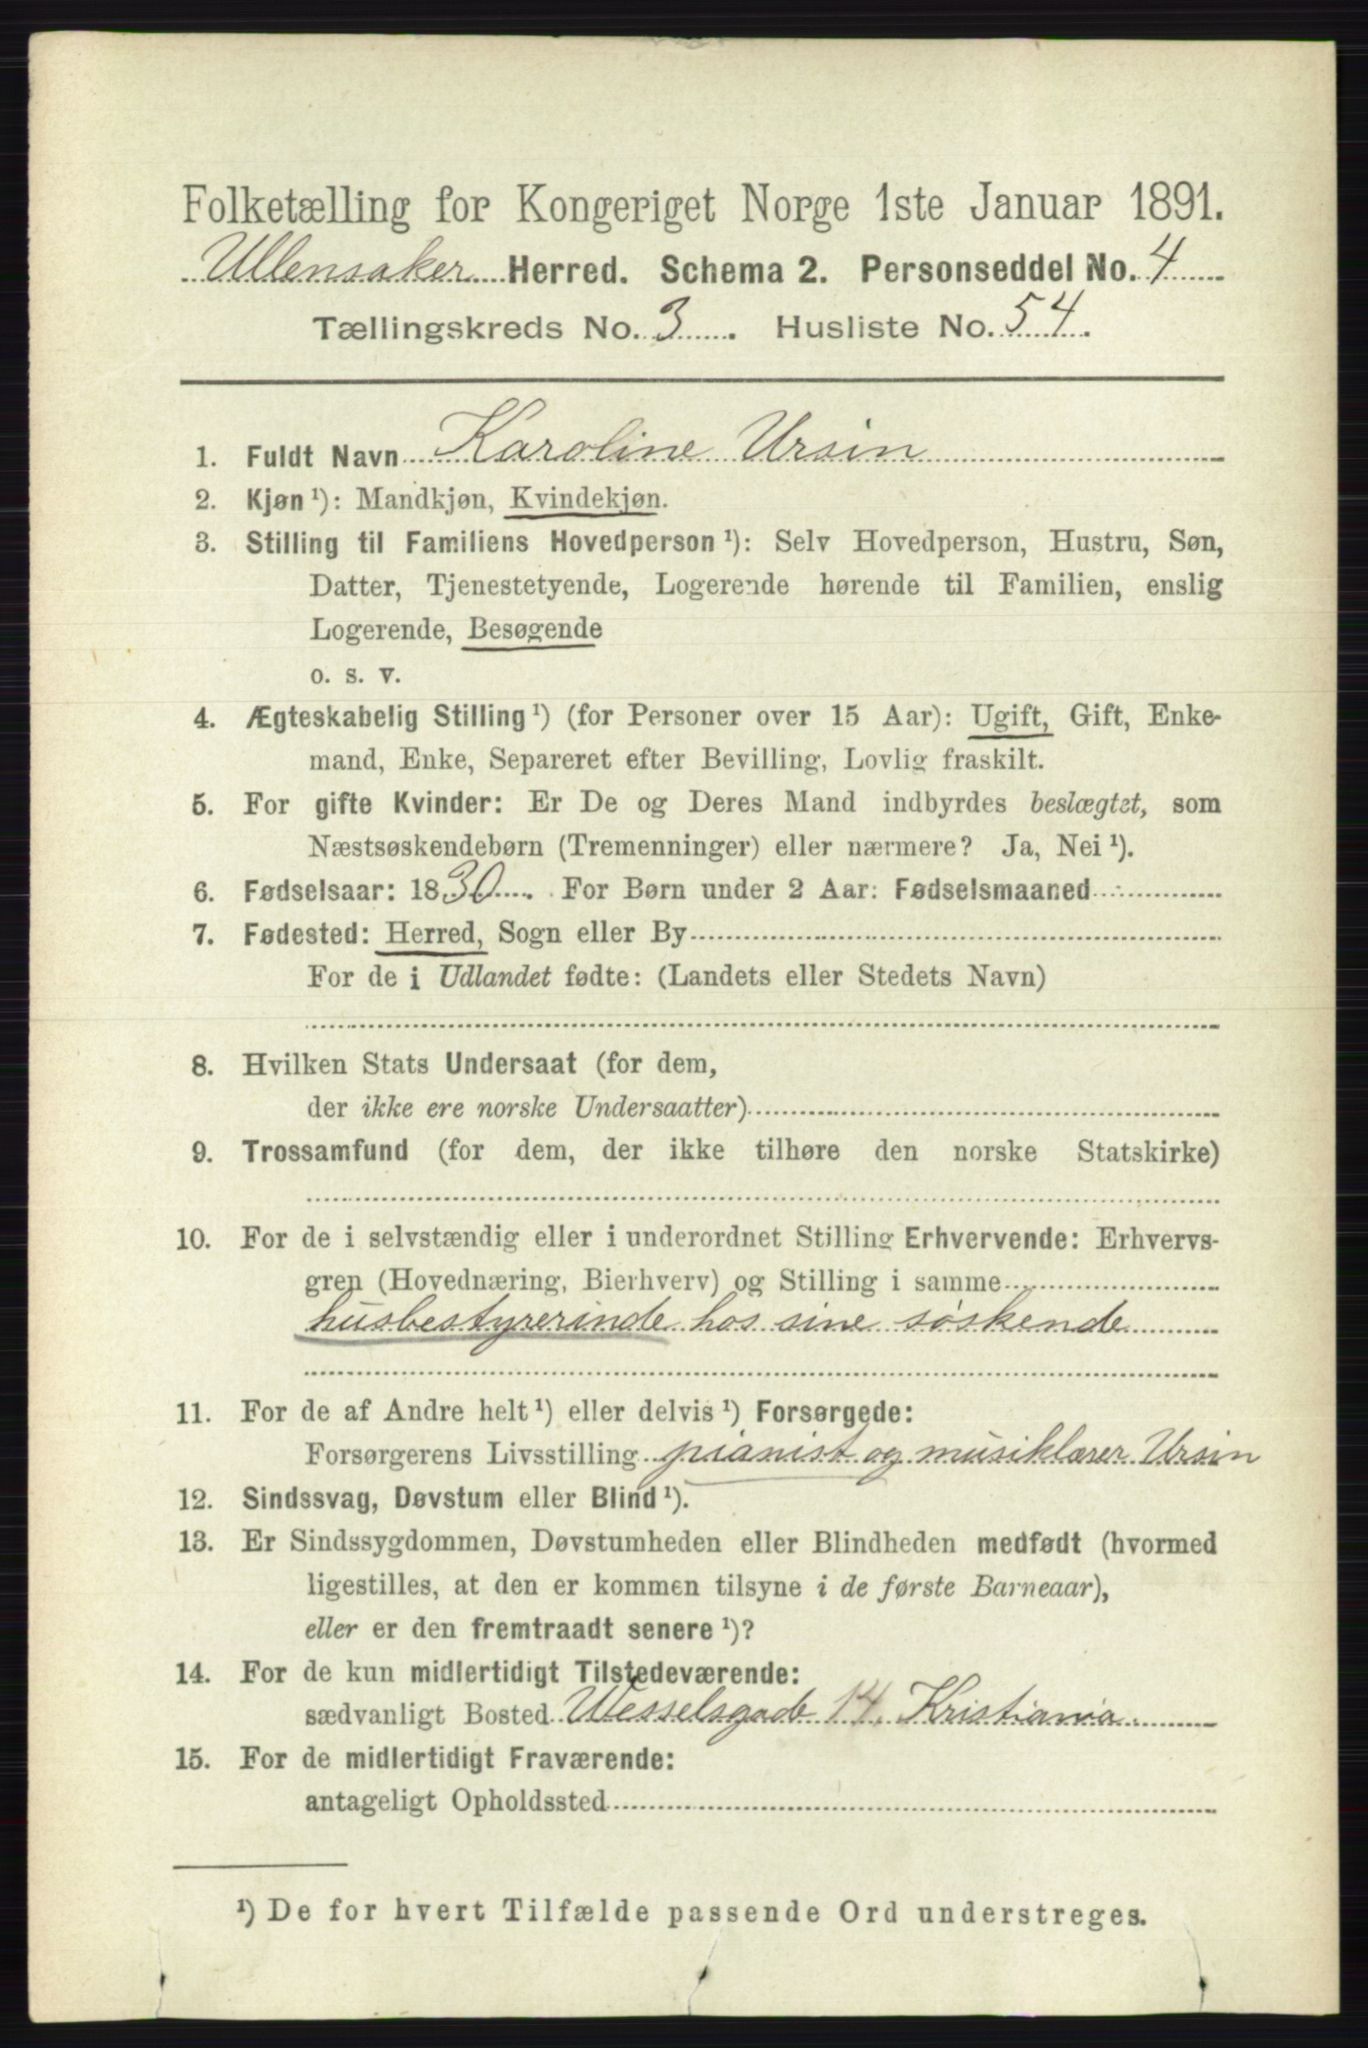 Folketælling for Kongeriget Norge 1ste Januar 1891.
Ullensaker Herred. Schema 2. Personseddel No. 4
Tællingskreds No. 3. Husliste No. 54.
1. Fuldt Navn Karoline Ursin
2. Kjøn ¹): Mandkjøn, Kvindekjøn.
3. Stilling til Familiens Hovedperson ¹): Selv Hovedperson, Hustru, Søn,
Datter, Tjenestetyende, Logerende hørende til Familien, enslig
Logerende, Besøgende
o. s. v.
4. Ægteskabelig Stilling ¹) (for Personer over 15 Aar): Ugift, Gift, Enke-
mand, Enke, Separeret efter Bevilling, Lovlig fraskilt.
5. For gifte Kvinder: Er De og Deres Mand indbyrdes beslægtet, som
Næstsøskendebørn (Tremenninger) eller nærmere? Ja, Nei ¹).
6. Fødselsaar: 1830. For Børn under 2 Aar: Fødselsmaaned
7. Fødested: Herred, Sogn eller By
For de i Udlandet fødte: (Landets eller Stedets Navn)
8. Hvilken Stats Undersaat (for dem,
der ikke ere norske Undersaatter)
9. Trossamfund (for dem, der ikke tilhøre den norske Statskirke)
10. For de i selvstændig eller i underordnet Stilling Erhvervende: Erhvervs-
gren (Hovednæring, Bierhverv) og Stilling i samme
husbestyrerinde hos sine søskende
11. For de af Andre helt ¹) eller delvis ¹) Forsørgede:
Forsørgerens Livsstilling pianist og musiklærer Ursin
12. Sindssvag, Døvstum eller Blind ¹).
13. Er Sindssygdommen, Døvstumheden eller Blindheden medfødt (hvormed
ligestilles, at den er kommen tilsyne i de første Barneaar),
eller er den fremtraadt senere ¹)?
14. For de kun midlertidigt Tilstedeværende:
sædvanligt Bosted Wesselsgade 14, Kristiania
15. For de midlertidigt Fraværende:
antageligt Opholdssted
¹) De for hvert Tilfælde passende Ord understreges.